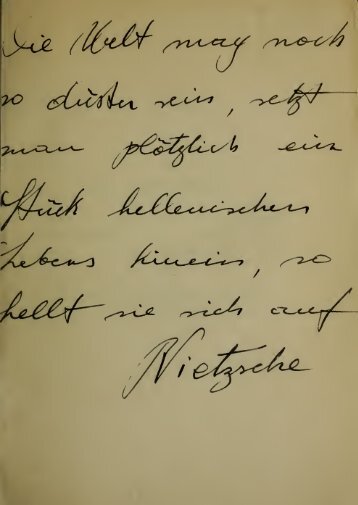 Die Welt mag noch
so düster sein, setzt
man plötzlich ein
Stück hellenischen
Lebens hinein, so
hellt sie sich auf
Nietzsche